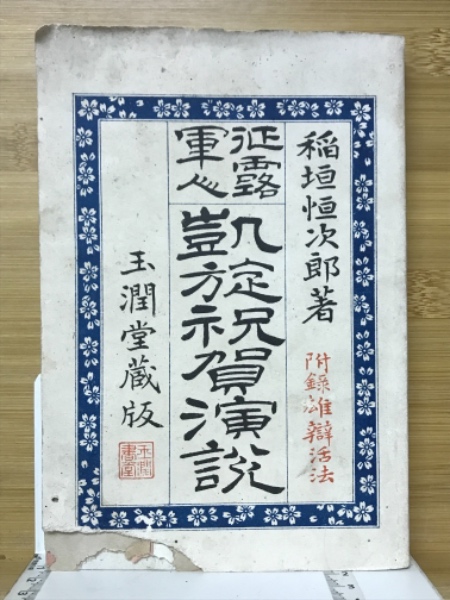 稲垣恒次郎著
附録雄辯活法
征露
軍人
凱旋祝賀演説
玉潤堂蔵版